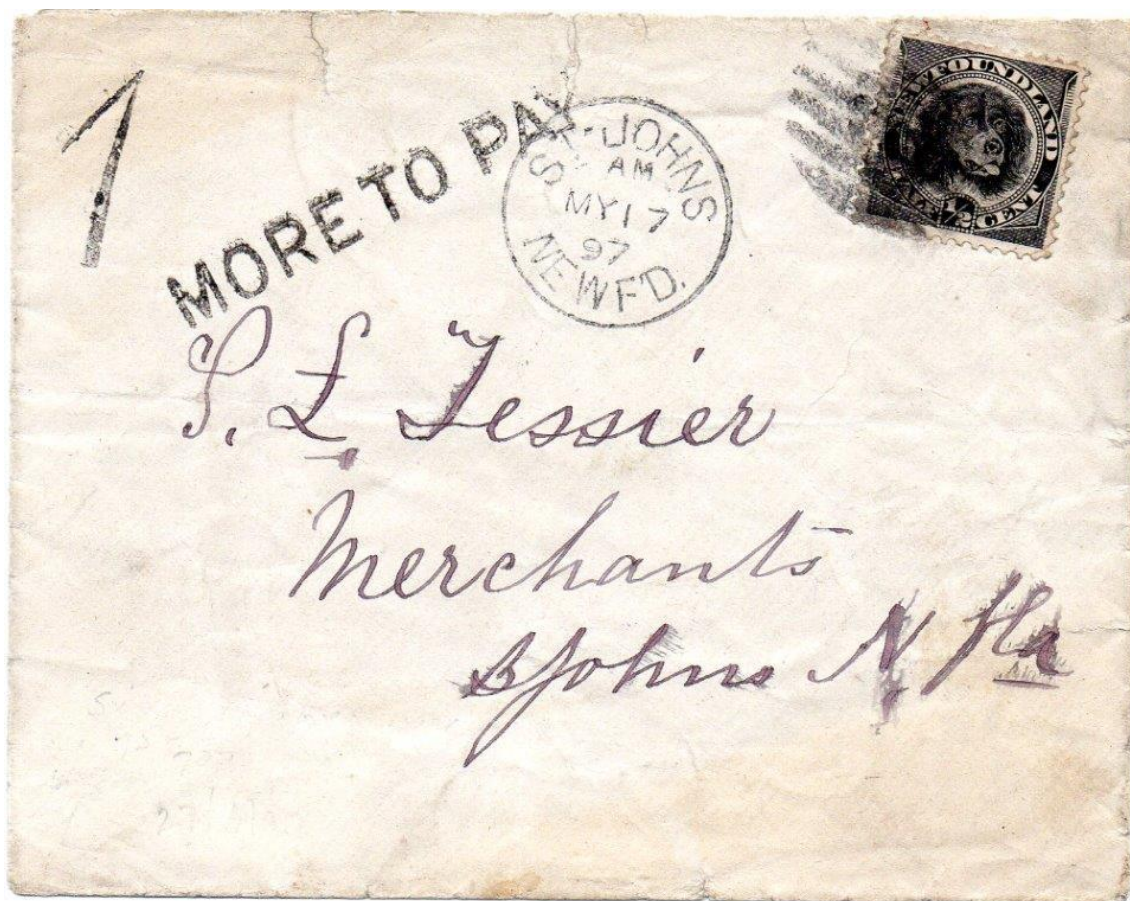 1
MORE TO PAY
ST. JOHNS
AM
MY 17
97
NEWF'D.
NEWFOUNDLAND
HALF 1/2 CENT
S. L. Tessier
Merchants
St Johns N. Fld